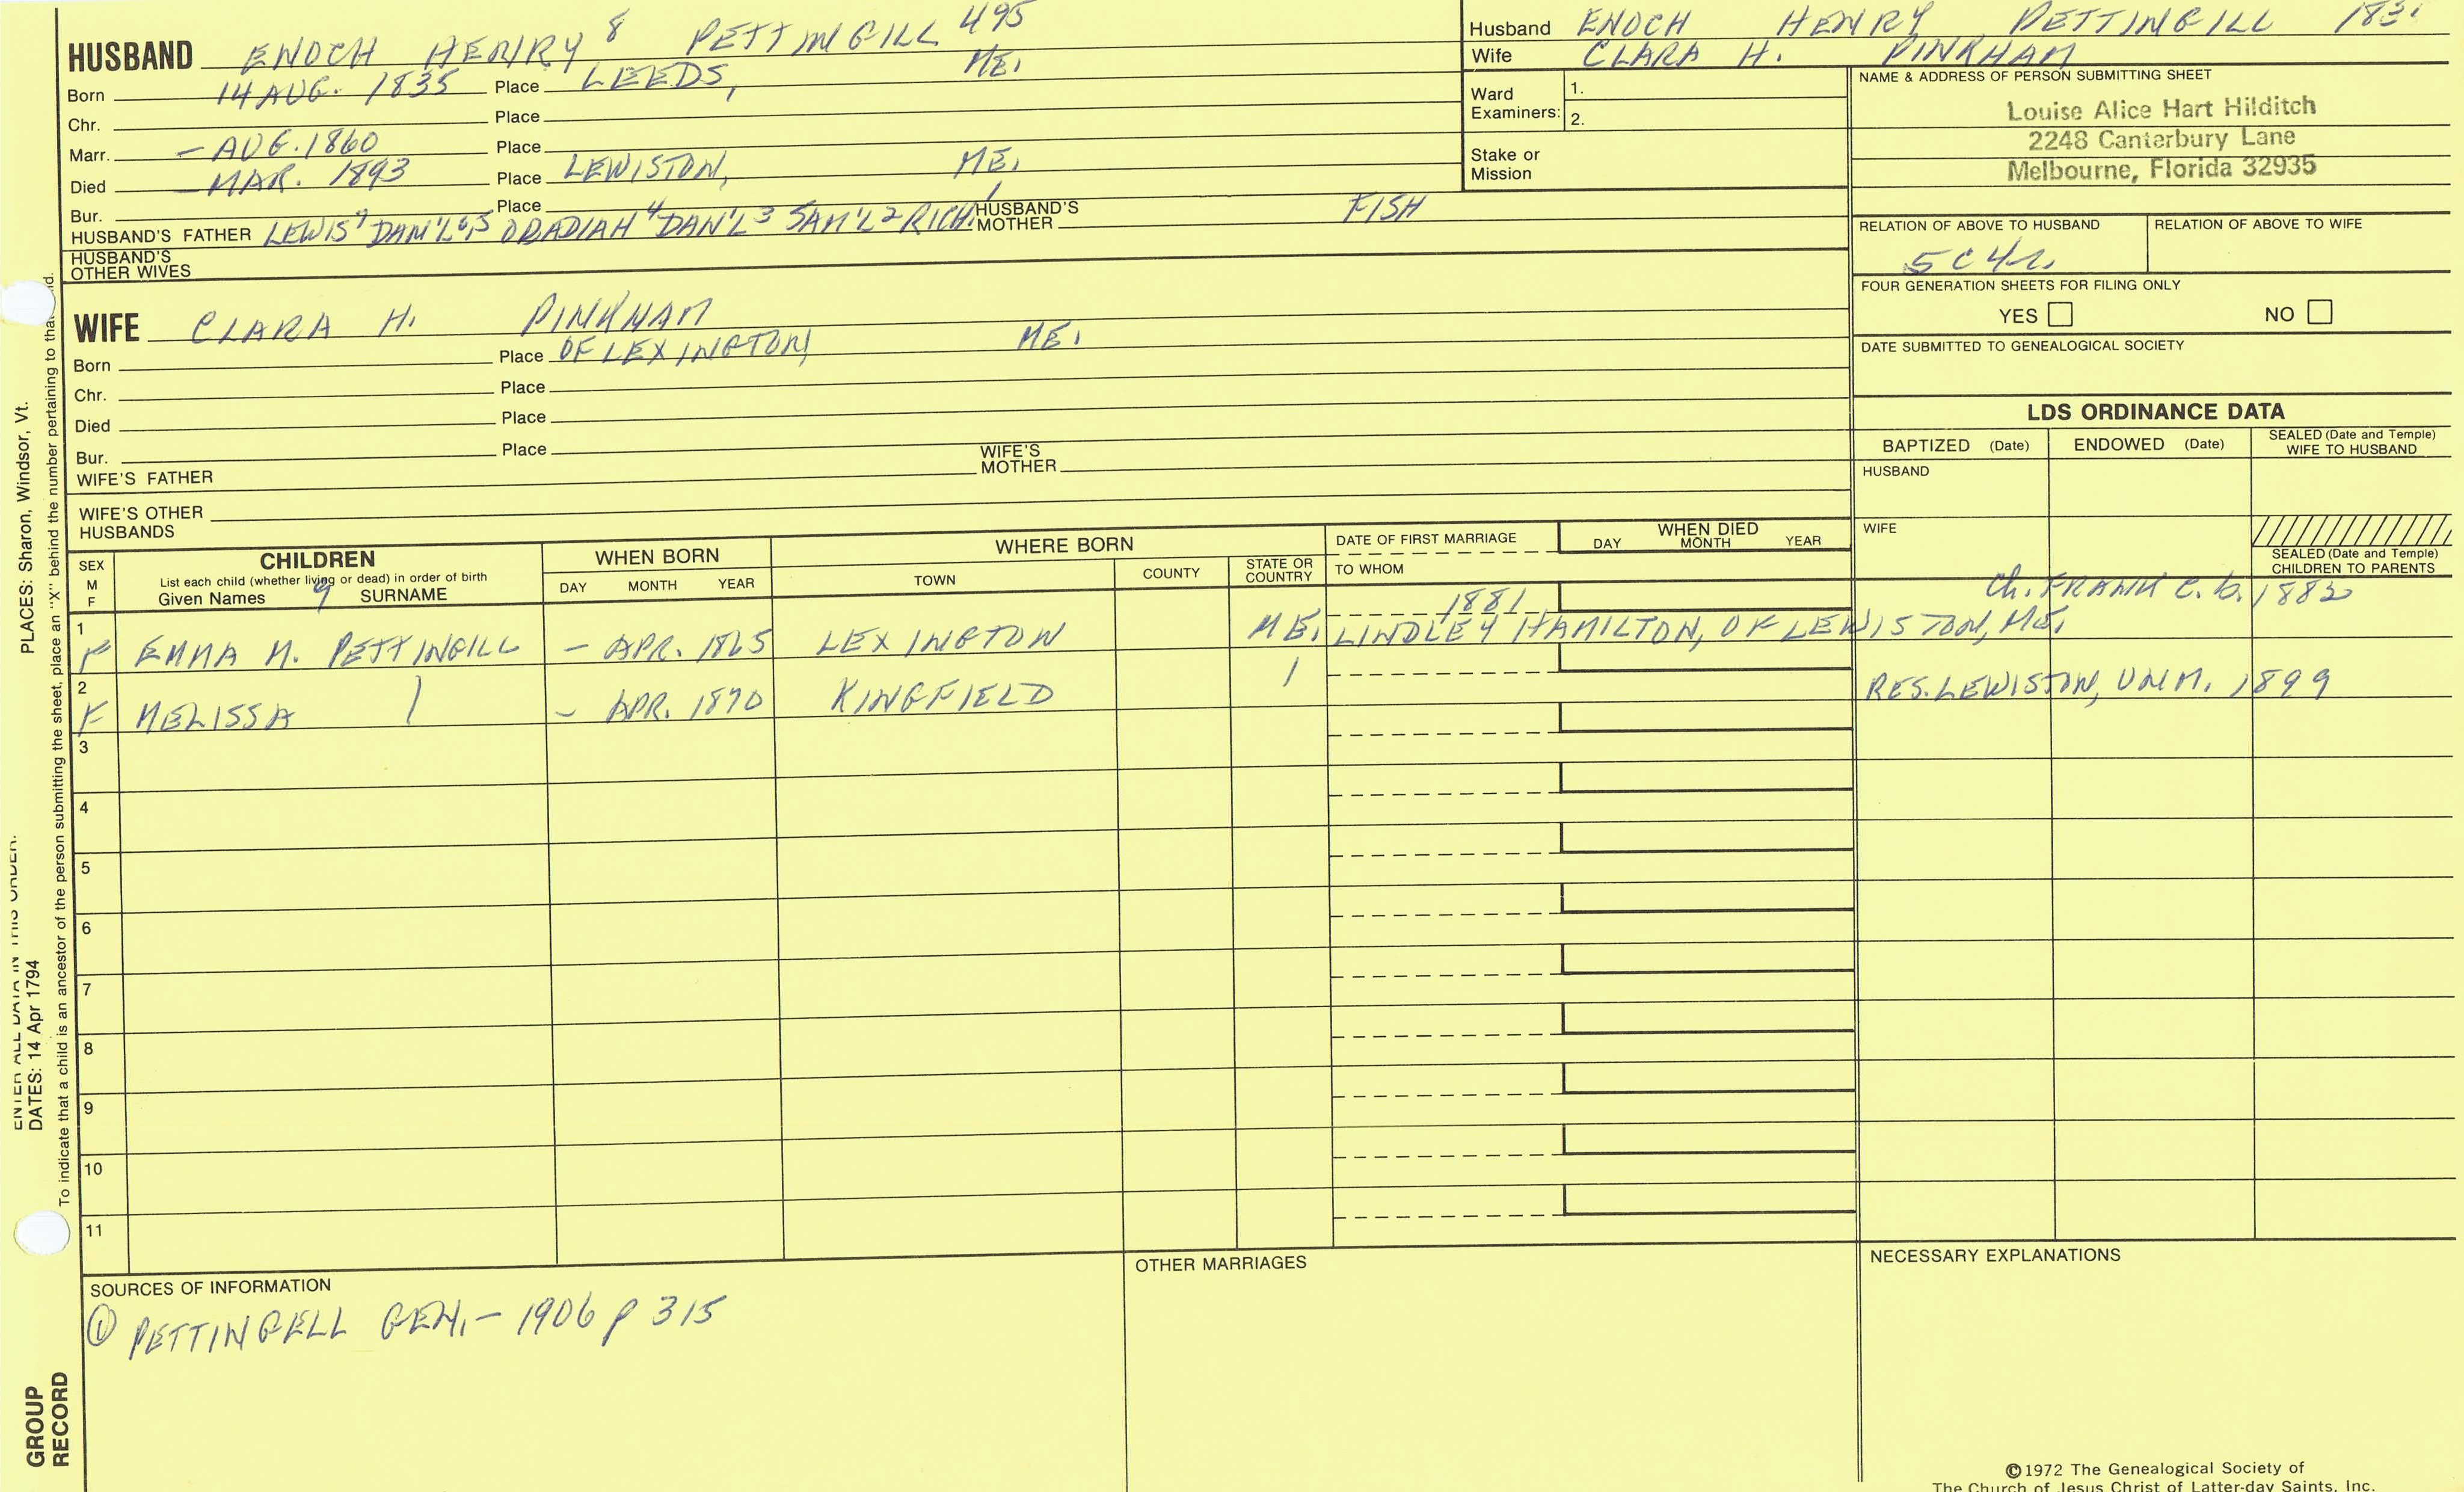 HUSBAND ENOCH HENRY 8 PETTINGILL 495
Born 14 AUG. 1835 Place LEEDS, ME.
Chr. Place
Marr. - AUG. 1860 Place
Died - MAR. 1893 Place LEWISTON, ME.
Bur. Place
HUSBAND'S FATHER LEWIS 7 DAN'L 6,5 OBADIAH 4 DAN'L 3 SAM'L 2 RICH. 1 HUSBAND'S MOTHER FISH
HUSBAND'S OTHER WIVES
Husband ENOCH HENRY PETTINGILL
Wife CLARA H. PINKHAM
Ward Examiners: 1.
2.
Stake or Mission
NAME & ADDRESS OF PERSON SUBMITTING SHEET
Louise Alice Hart Hilditch
2248 Canterbury Lane
Melbourne, Florida 32935
RELATION OF ABOVE TO HUSBAND RELATION OF ABOVE TO WIFE
5C4R.
FOUR GENERATION SHEETS FOR FILING ONLY
YES NO
DATE SUBMITTED TO GENEALOGICAL SOCIETY
WIFE CLARA H. PINKHAM
Born Place OF LEXINGTON, ME.
Chr. Place
Died Place
Bur. Place
WIFE'S FATHER WIFE'S MOTHER
WIFE'S OTHER HUSBANDS
LDS ORDINANCE DATA
BAPTIZED (Date) ENDOWED (Date) SEALED (Date and Temple) WIFE TO HUSBAND
HUSBAND
WIFE
SEALED (Date and Temple) CHILDREN TO PARENTS
SEX M F
CHILDREN
List each child (whether living or dead) in order of birth
Given Names 9 SURNAME
WHEN BORN
DAY MONTH YEAR
WHERE BORN
TOWN COUNTY STATE OR COUNTRY
DATE OF FIRST MARRIAGE
TO WHOM
WHEN DIED
DAY MONTH YEAR
1 F EMMA M. PETTINGILL - APR. 1865 LEXINGTON ME. 1881 LINDLEY HAMILTON, OF LEWISTON, ME. Ch. FRANK C. b. 1882
2 F MELISSA - APR. 1870 KINGFIELD RES. LEWISTON, UNM. 1899
3
4
5
6
7
8
9
10
11
SOURCES OF INFORMATION
① PETTINGELL GEN. - 1906 p 315
OTHER MARRIAGES
NECESSARY EXPLANATIONS
©1972 The Genealogical Society of
The Church of Jesus Christ of Latter-day Saints, Inc.
PLACES: Sharon, Windsor, Vt.
ENTER ALL DATA IN THIS ORDER:
DATES: 14 Apr 1794
To indicate that a child is an ancestor of the person submitting the sheet, place an "X" behind the number pertaining to that
GROUP
RECORD